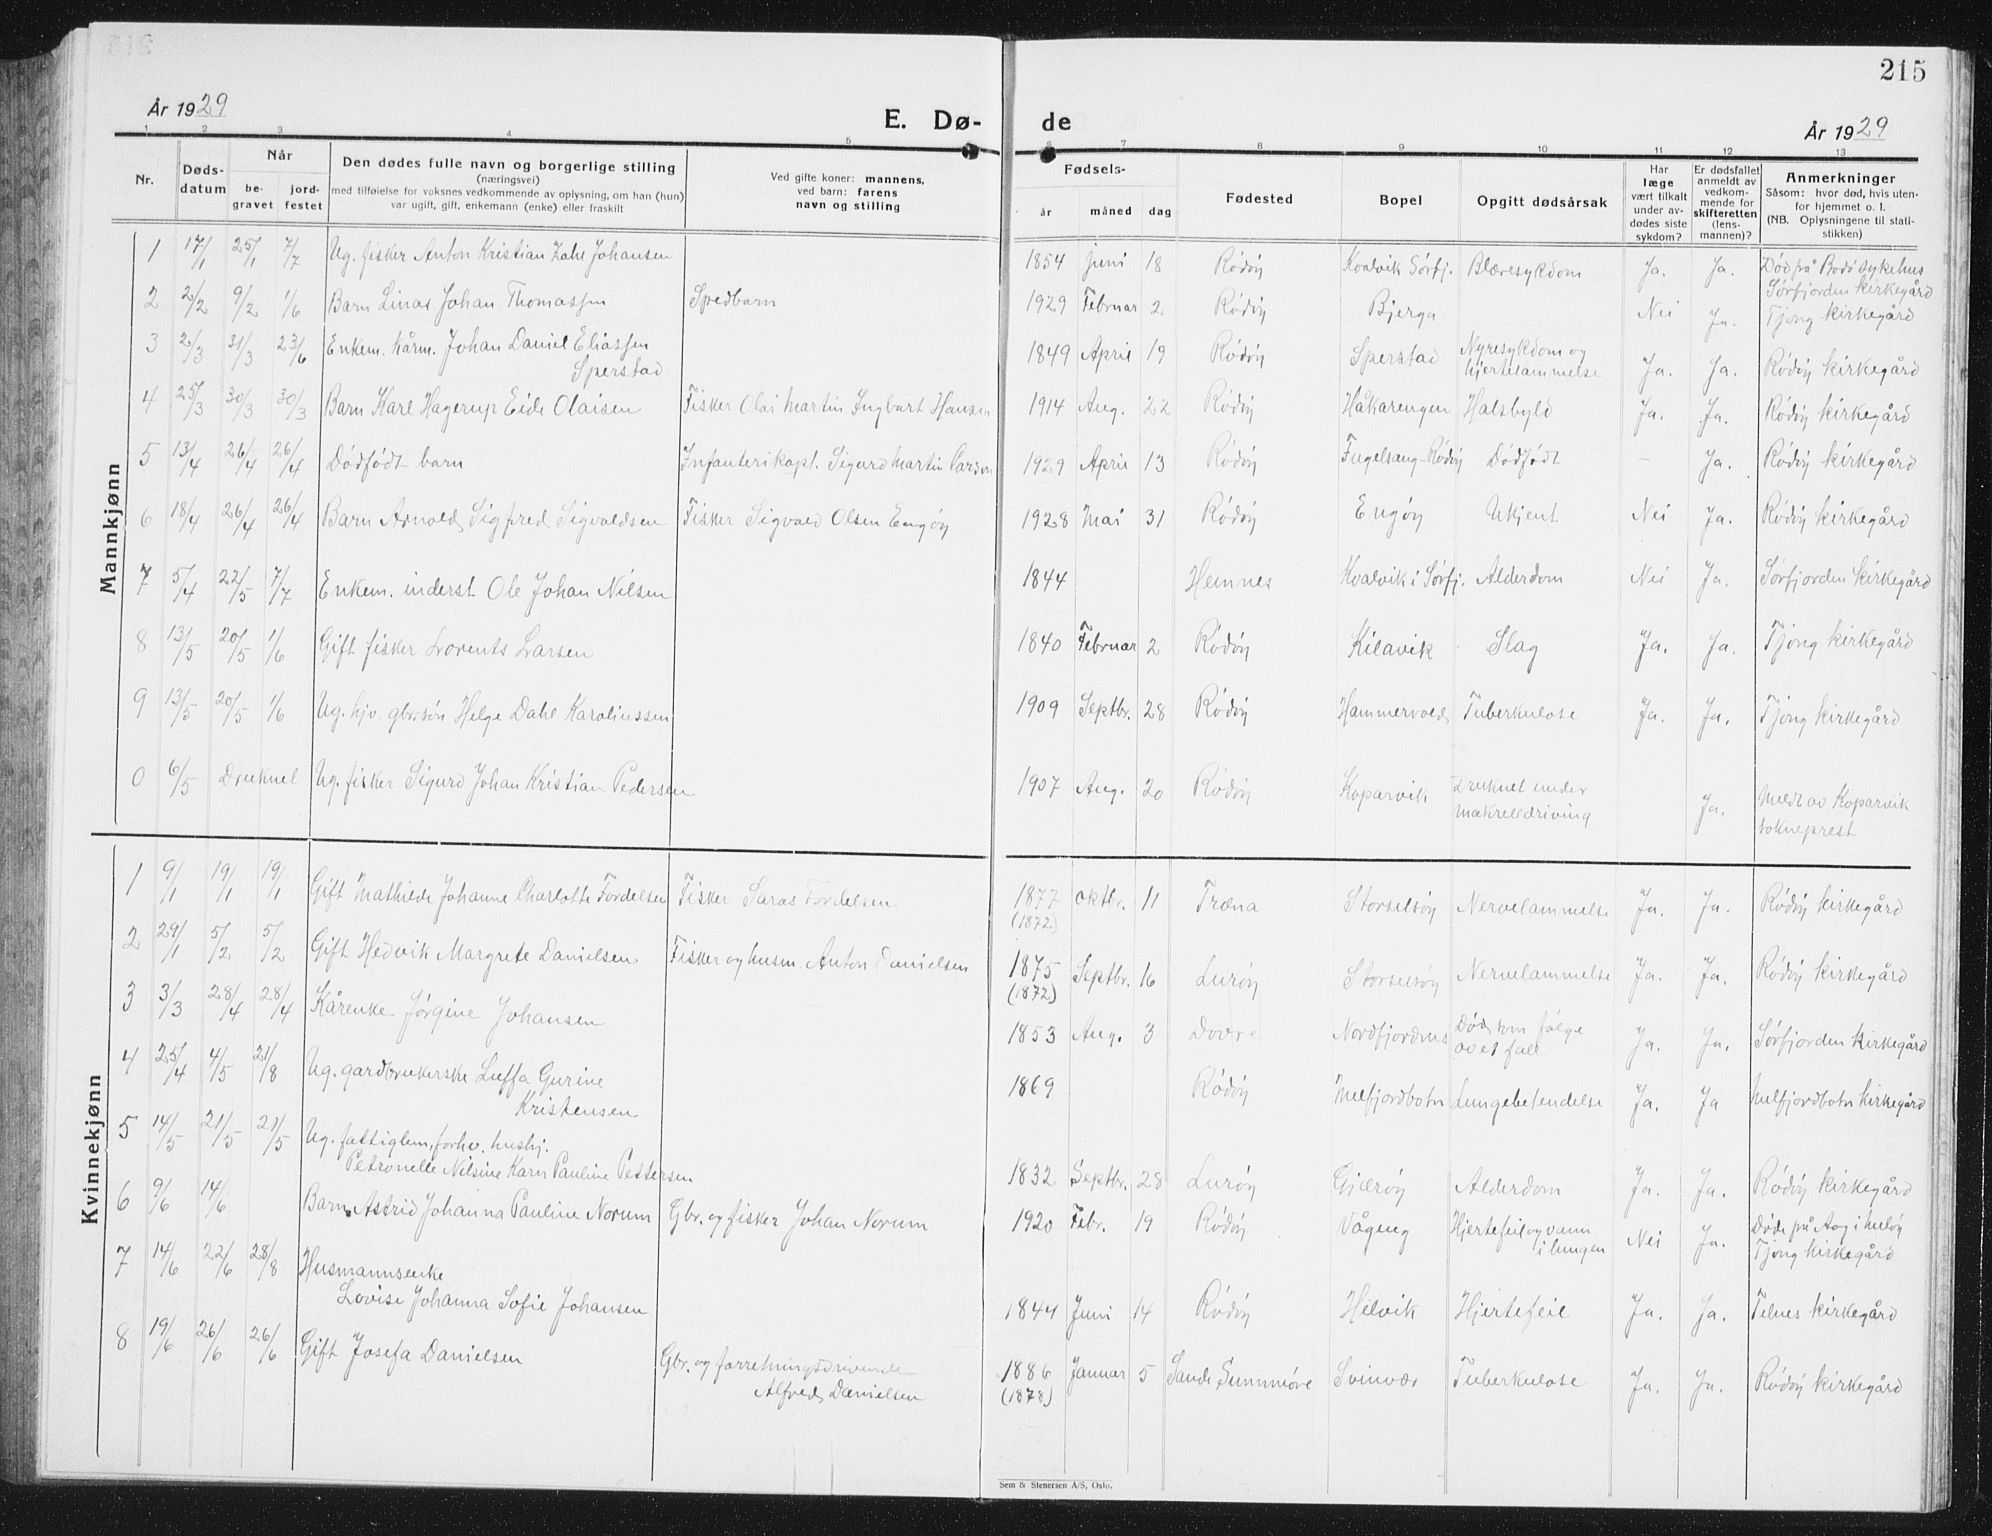 215
År 1929
E. Dø-
de
År 1929
1 2 3 4 5 6 7 8 9 10 11 12 13
Nr.
Døds-
datum
Når
be-
gravet
jord-
festet
Den dødes fulle navn og borgerlige stilling
(næringsvei)
med tilføielse for voksnes vedkommende av oplysning, om han (hun)
var ugift, gift, enkemann (enke) eller fraskilt
Ved gifte koner: mannens,
ved barn: farens
navn og stilling
Fødsels-
år måned dag
Fødested
Bopel
Opgitt dødsårsak
Har
læge
vært tilkalt
under av-
dødes siste
sykdom?
Er dødsfallet
anmeldt av
vedkom-
mende for
skifteretten
(lens-
mannen)?
Anmerkninger
Såsom: hvor død, hvis uten-
for hjemmet o. l.
(NB. Oplysningene til stati-
stikken)
Mannkjønn
1 17/1 25/1 7/7 Ug. fisker Anton Kristian Zahl Johansen 1854 juni 18 Rödöy Kvalvik Sörfj. Blæresykdom Ja. Ja. Död på Bodö sykehus
Sörfjorden kirkegård
2 2/2 9/2 1/6 Barn Linas Johan Thomassen Spedbarn 1929 Februar 2 Rödöy Bjerga Nei Ja. Tjong kirkegård
3 2/3 31/3 23/6 Enkem. kårm. Johan Daniel Eliassen
Sperstad 1849 April 19 Rödöy Sperstad Nyresykdom og
hjertelammelse Ja. Ja. Rödöy kirkegård
4 25/3 30/3 30/3 Barn Karl Hagerup Eide Olaisen Fisker Olai Martin Ingbart Hansen 1914 Aug. 22 Rödöy Håkarengen Halsbyld Ja. Ja. Rödöy kirkegård
5 13/4 26/4 26/4 Dödfödt barn Infanterikapt. Sigurd Martin Larsen 1929 April 13 Rödöy Fugelsang-Rödöy Dödfödt – Ja. Rödöy kirkegård
6 18/4 26/4 26/4 Barn Arnold Sigfred Sigvaldsen Fisker Sigvald Olsen Engöy 1928 Mai 31 Rödöy Engöy Ukjent Nei Ja. Rödöy kirkegård
7 5/4 22/5 7/7 Enkem. inderst Ole Johan Nilsen 1844 Hemnes Kvalvik i Sörfj. Alderdom Nei Ja. Sörfjorden kirkegård
8 13/5 20/5 1/6 Gift fisker Lorents Larsen 1840 Februar 2 Rödöy Kilavik Slag Ja. Ja. Tjong kirkegård
9 13/5 20/5 1/6 Ug. hjv. gbr.sön Helge Dahl Karolinssen 1909 Septbr. 28 Rödöy Hammervold Tuberkulose Ja. Ja. Tjong kirkegård
0 6/5 Druknet Ug. fisker Sigurd Johan Kristian Pedersen 1907 Aug. 20 Rödöy Koparvik Druknet under
makrelldriving Ja. Meldt av Koparvik
sokneprest
Kvinnekjønn
1 9/1 19/1 19/1 Gift Mathilde Johanne Charlotte Fordelsen Fisker Saras Fordelsen 1877
(1872) oktbr. 11 Træna Storselsöy Nervelammelse Ja. Ja. Rödöy kirkegård
2 29/1 5/2 5/2 Gift Hedvik Margrete Danielsen Fisker og husm. Anton Danielsen 1875
(1872) Septbr. 16 Luröy Storselsöy Nervelammelse Ja. Ja. Rödöy kirkegård
3 3/3 28/4 28/4 Kårenke Jörgine Johansen 1853 Aug. 3 Dovre Nordfjordnes Död som fölge
av et fall Ja. Ja. Sörfjorden kirkegård
4 25/4 4/5 21/8 Ug. gardbrukerske Luffa Gurine
Kristensen 1869 Rödöy Melfjordbotn Lungebetendelse Ja. Ja Melfjordbotn kirkegård
5 14/5 21/5 21/5 Ug. fattiglem, forhv. hushj.
Petronelle Nilsine Karn Pauline Pettersen 1832 Septbr. 28 Luröy Gjæröy Alderdom Ja. Ja. Rödöy kirkegård
6 9/6 14/6 Barn Astrid Johanna Pauline Norum Gbr. og fisker Johan Norum 1920 Febr. 19 Rödöy Vågeng Hjertefeil og vann
i lungen Nei Ja. Döde på Aag i Melöy
Tjong kirkegård
7 14/6 22/6 28/8 Husmannsenke
Lovise Johanna Sofie Johansen 1844 Juni 14 Rödöy Helvik Hjertefeil Ja. Ja. Telnes kirkegård
8 19/6 26/6 26/6 Gift Josefa Danielsen Gbr. og forretningsdrivende
Alfred Danielsen 1886
(1878) Januar 5 Sande Sunnmöre Svinvær Tuberkulose Ja. Ja. Rödöy kirkegård
Sem & Stenersen A/S, Oslo.